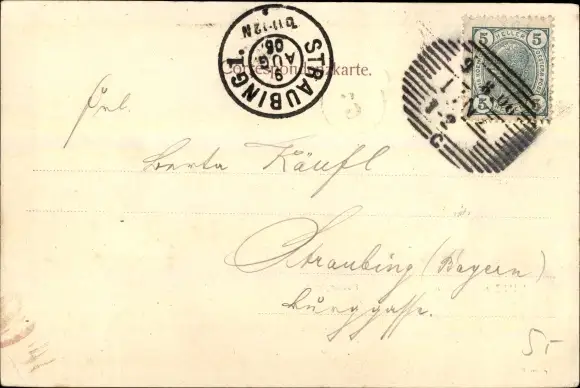 5 HELLER 5
5 5
STRAUBING 1.
9
AUG.
06.
D.11-12N
Correspondenzkarte.
Frl.
Berta Käufl
Straubing (Bayern)
Burggasse.
5-